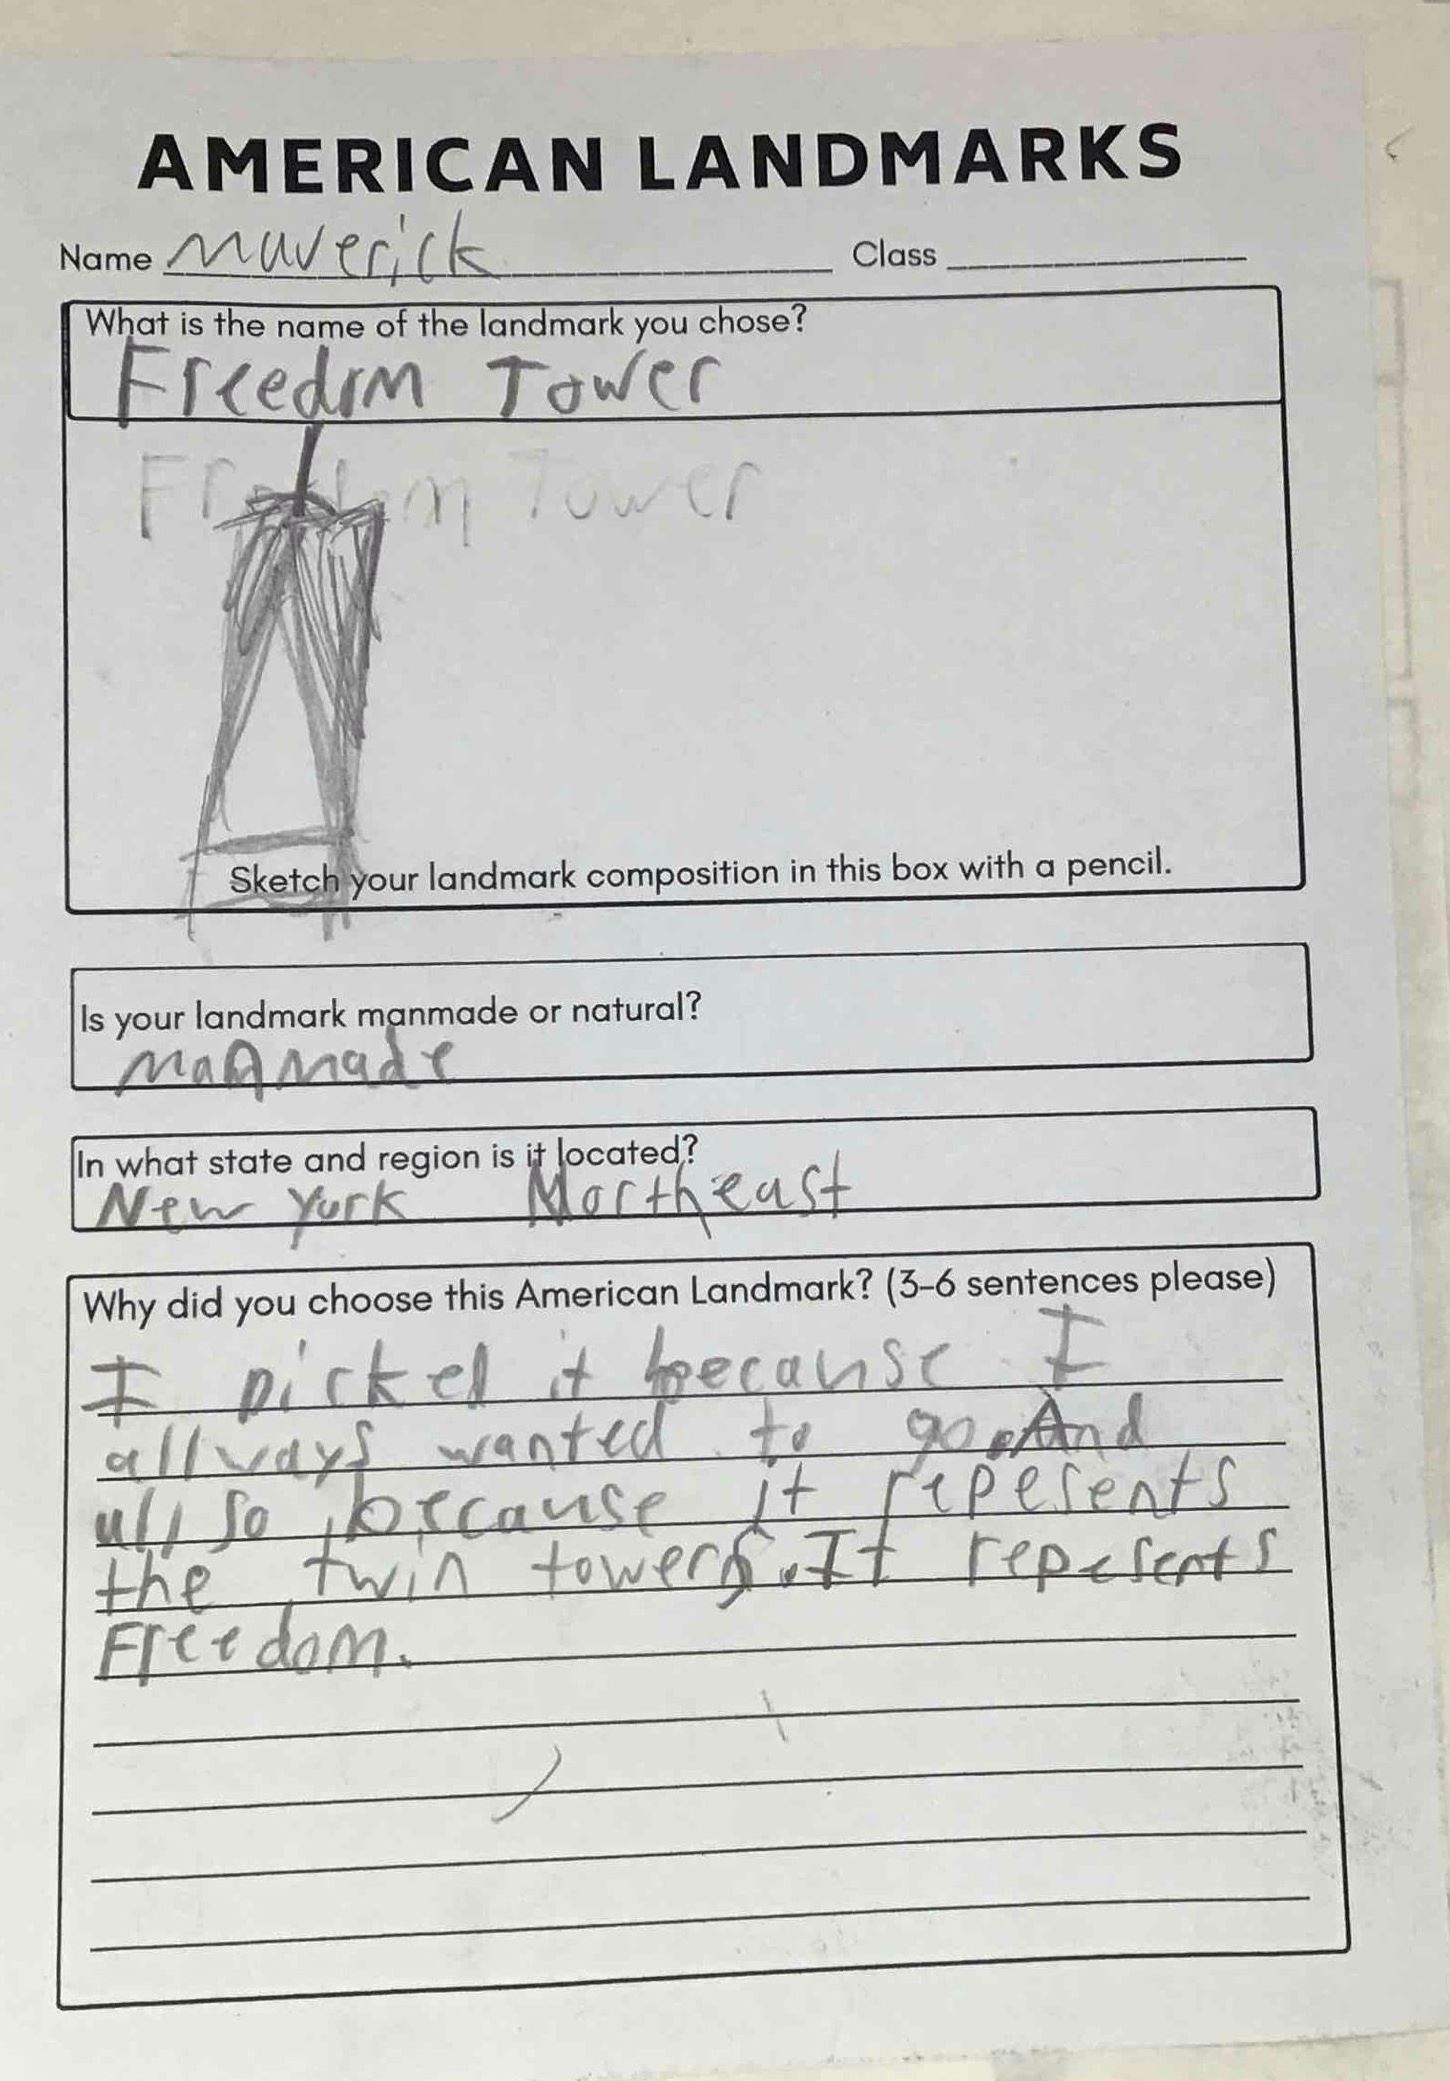 AMERICAN LANDMARKS
Name Maverick Class
What is the name of the landmark you chose?
Freedom Tower
Freedom Tower
Sketch your landmark composition in this box with a pencil.
Is your landmark manmade or natural?
manmade
In what state and region is it located?
New York Northeast
Why did you choose this American Landmark? (3-6 sentences please)
I picked it because I
allways wanted to go. And
allso because it repesents
the twin towers. It repesents
Freedom.